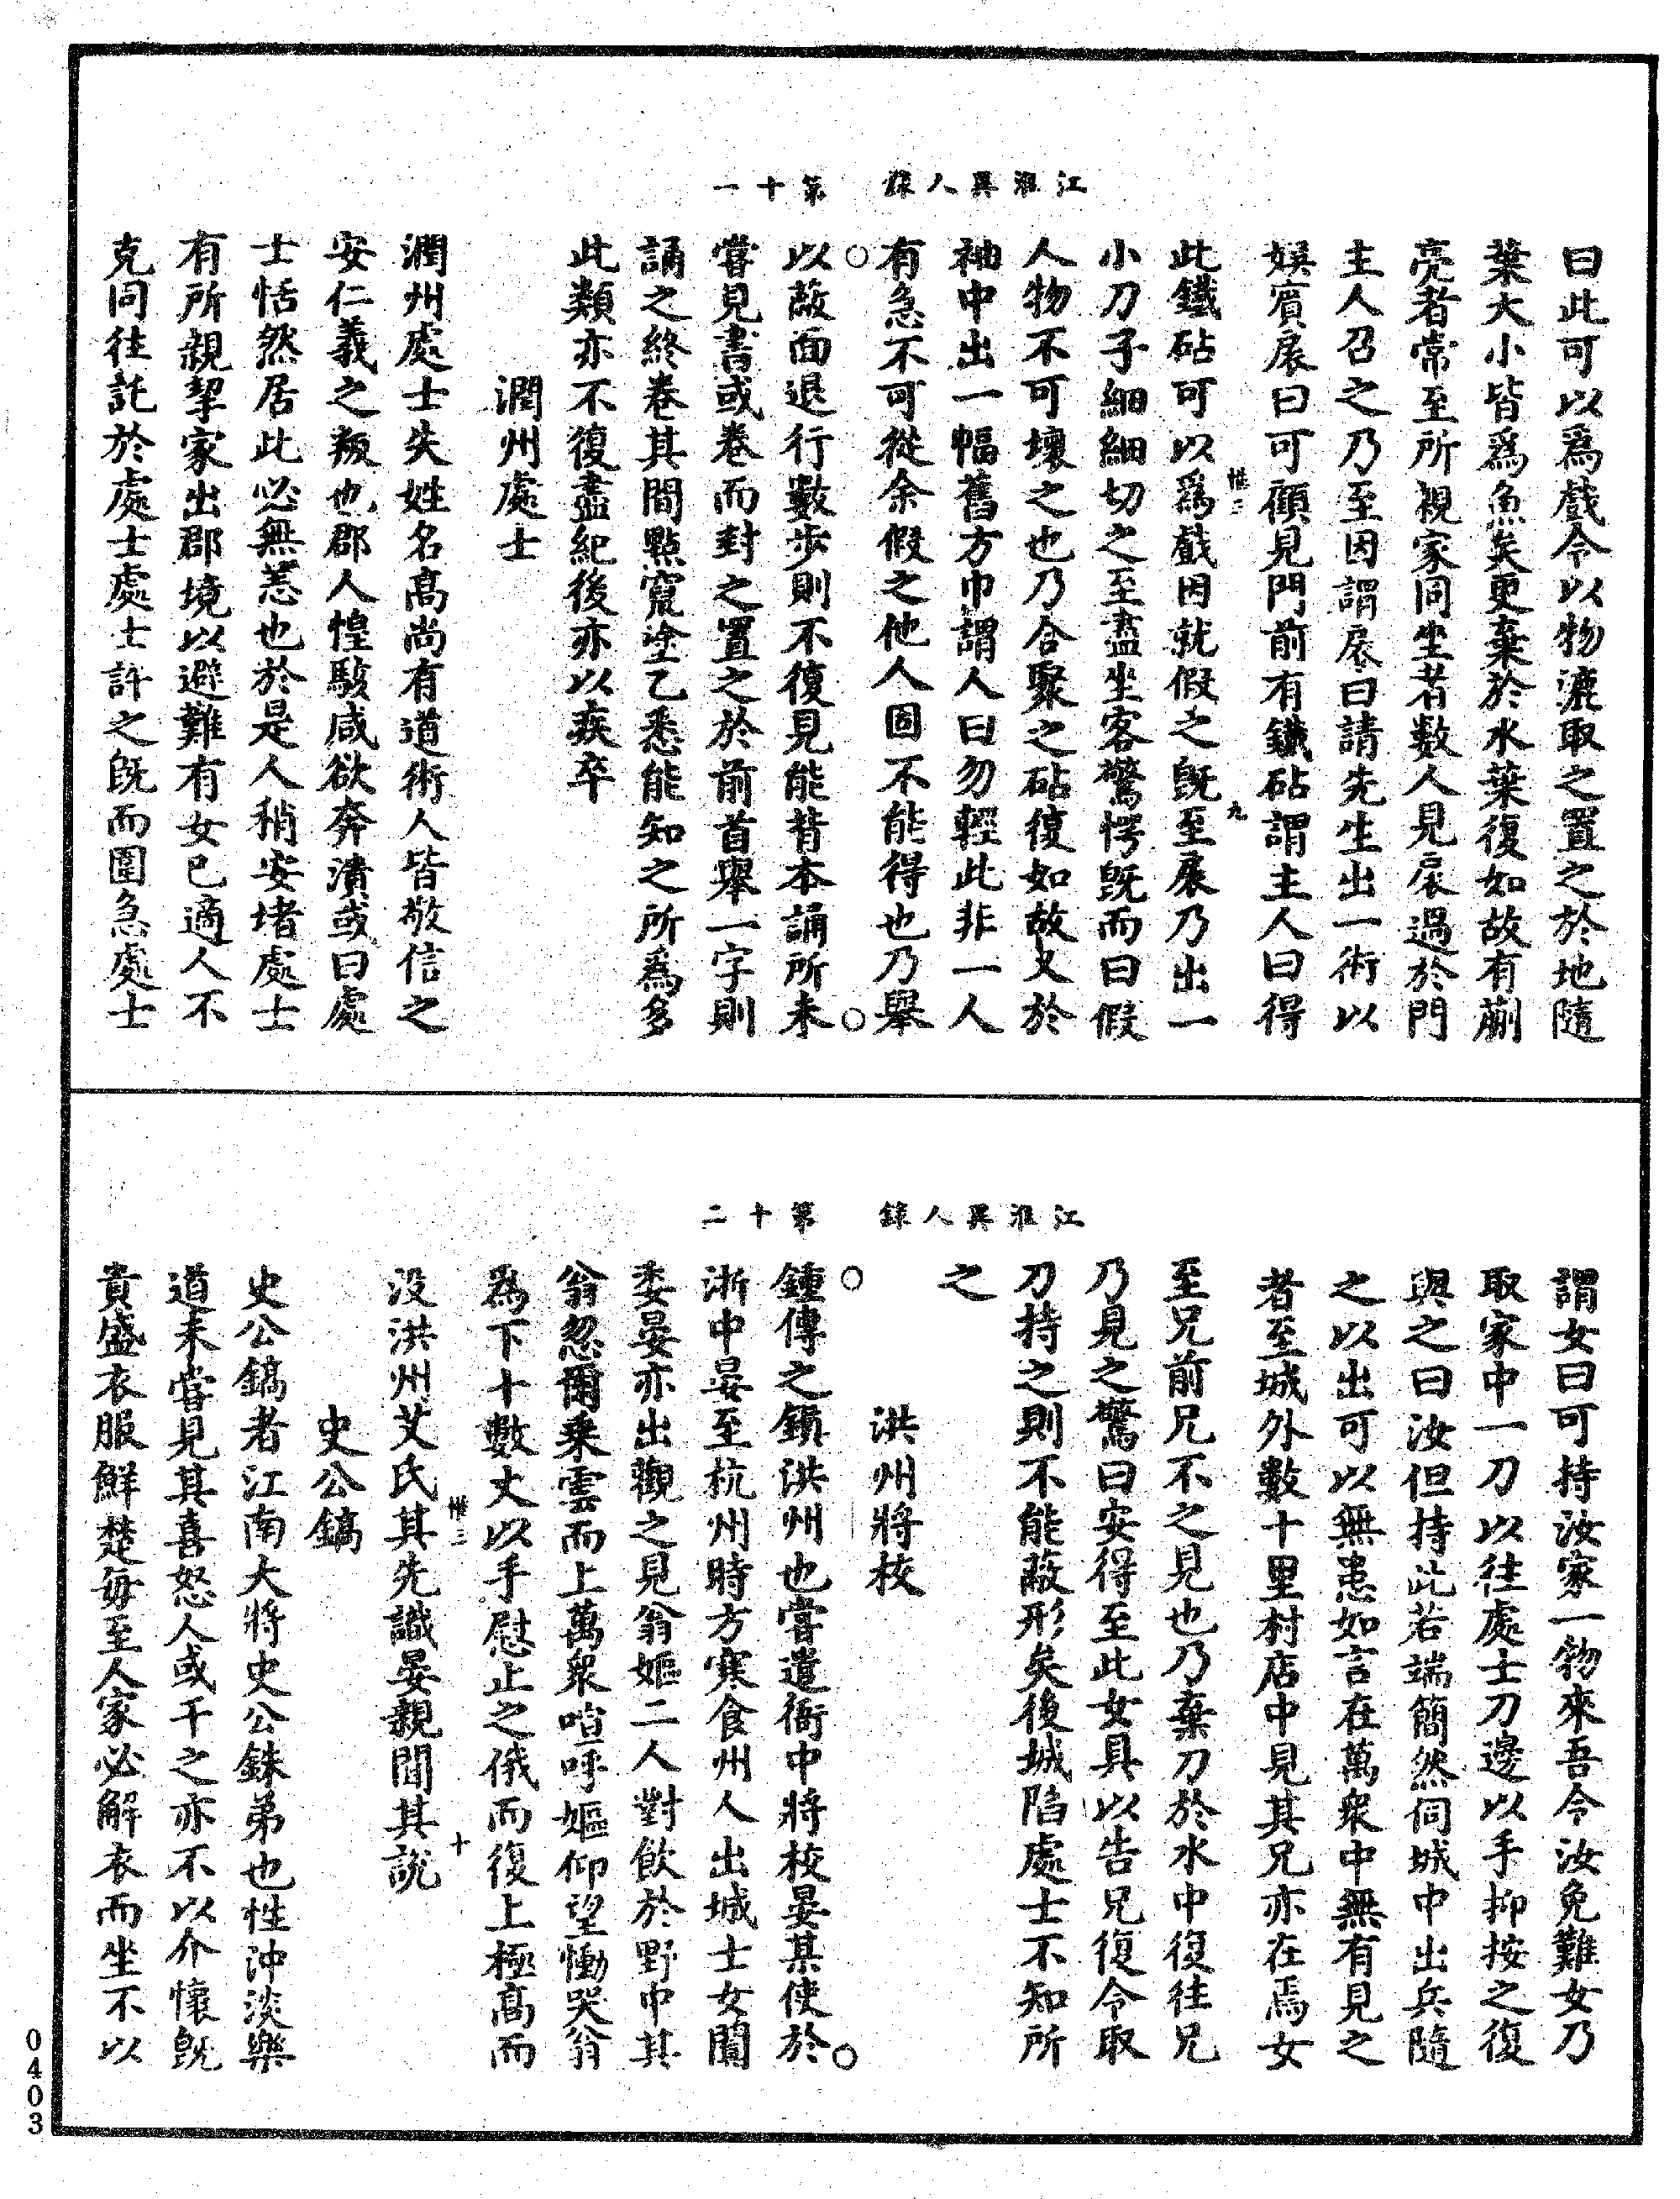 江淮異人錄　第十一
曰此可以爲戲令以物漉取之置之於地隨
葉大小皆爲魚矣更棄於水葉復如故有蒯
亮者常至所親家同坐者數人見扆過於門
主人召之乃至因謂扆曰請先生出一術以
娛賓扆曰可顧見門前有鐵砧謂主人曰得
惟三　九
此鐵砧可以爲戲因就假之既至扆乃出一
小刀子細細切之至盡坐客驚愕既而曰假
人物不可壞之也乃合聚之砧復如故又於
袖中出一幅舊方巾謂人曰勿輕此非一人
有急不可從余假之他人固不能得也乃舉
以蔽面退行數步則不復見能背本誦所未
嘗見書或卷而封之置之於前首舉一字則
誦之終卷其間點竄塗乙悉能知之所爲多
此類亦不復盡紀後亦以疾卒
潤州處士
潤州處士失姓名高尚有道術人皆敬信之
安仁義之叛也郡人惶駭咸欲奔潰或曰處
士恬然居此必無恙也於是人稍安堵處士
有所親挈家出郡境以避難有女已適人不
克同往託於處士處士許之既而圍急處士
江淮異人錄　第十二
謂女曰可持汝家一物來吾令汝免難女乃
取家中一刀以往處士刀邊以手抑按之復
與之曰汝但持此若端簡然伺城中出兵隨
之以出可以無患如言在萬衆中無有見之
者至城外數十里村店中見其兄亦在焉女
至兄前兄不之見也乃棄刀於水中復往兄
乃見之驚曰安得至此女具以告兄復令取
刀持之則不能蔽形矣後城陷處士不知所
之
洪州將校
鍾傳之鎮洪州也嘗遣衙中將校晏某使於
浙中晏至杭州時方寒食州人出城士女闐
委晏亦出觀之見翁嫗二人對飲於野中其
翁忽爾乘雲而上萬衆喧呼嫗仰望慟哭翁
爲下十數丈以手慰止之俄而復上極高而
惟三　十
没洪州艾氏其先識晏親聞其說
史公鎬
史公鎬者江南大將史公銖弟也性沖淡樂
道未嘗見其喜怒人或干之亦不以介懷既
貴盛衣服鮮楚每至人家必解衣而坐不以
0403